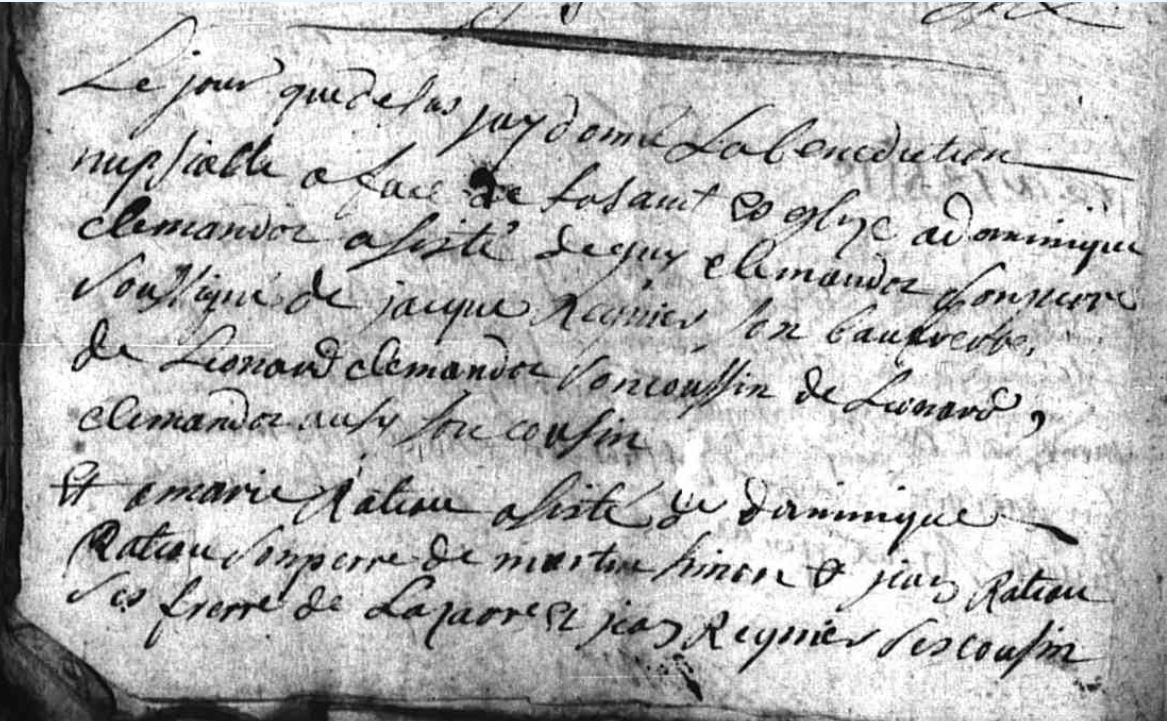 Le jour que desus jay donné La benediction
nupsialle a face de la saint eglyse a dominique
clemandot asisté de guy clemandot son perre
soussigné de jacque Regnier son baufrerre,
de Leonard clemandot son coussin de Leonard,
clemandot ausy son cousin
et a marie Rateau asisté de dominique
Rateau son perre de martin simon et jean Rateau
ses frerre de Lazarre et jean Regnier ses cousin